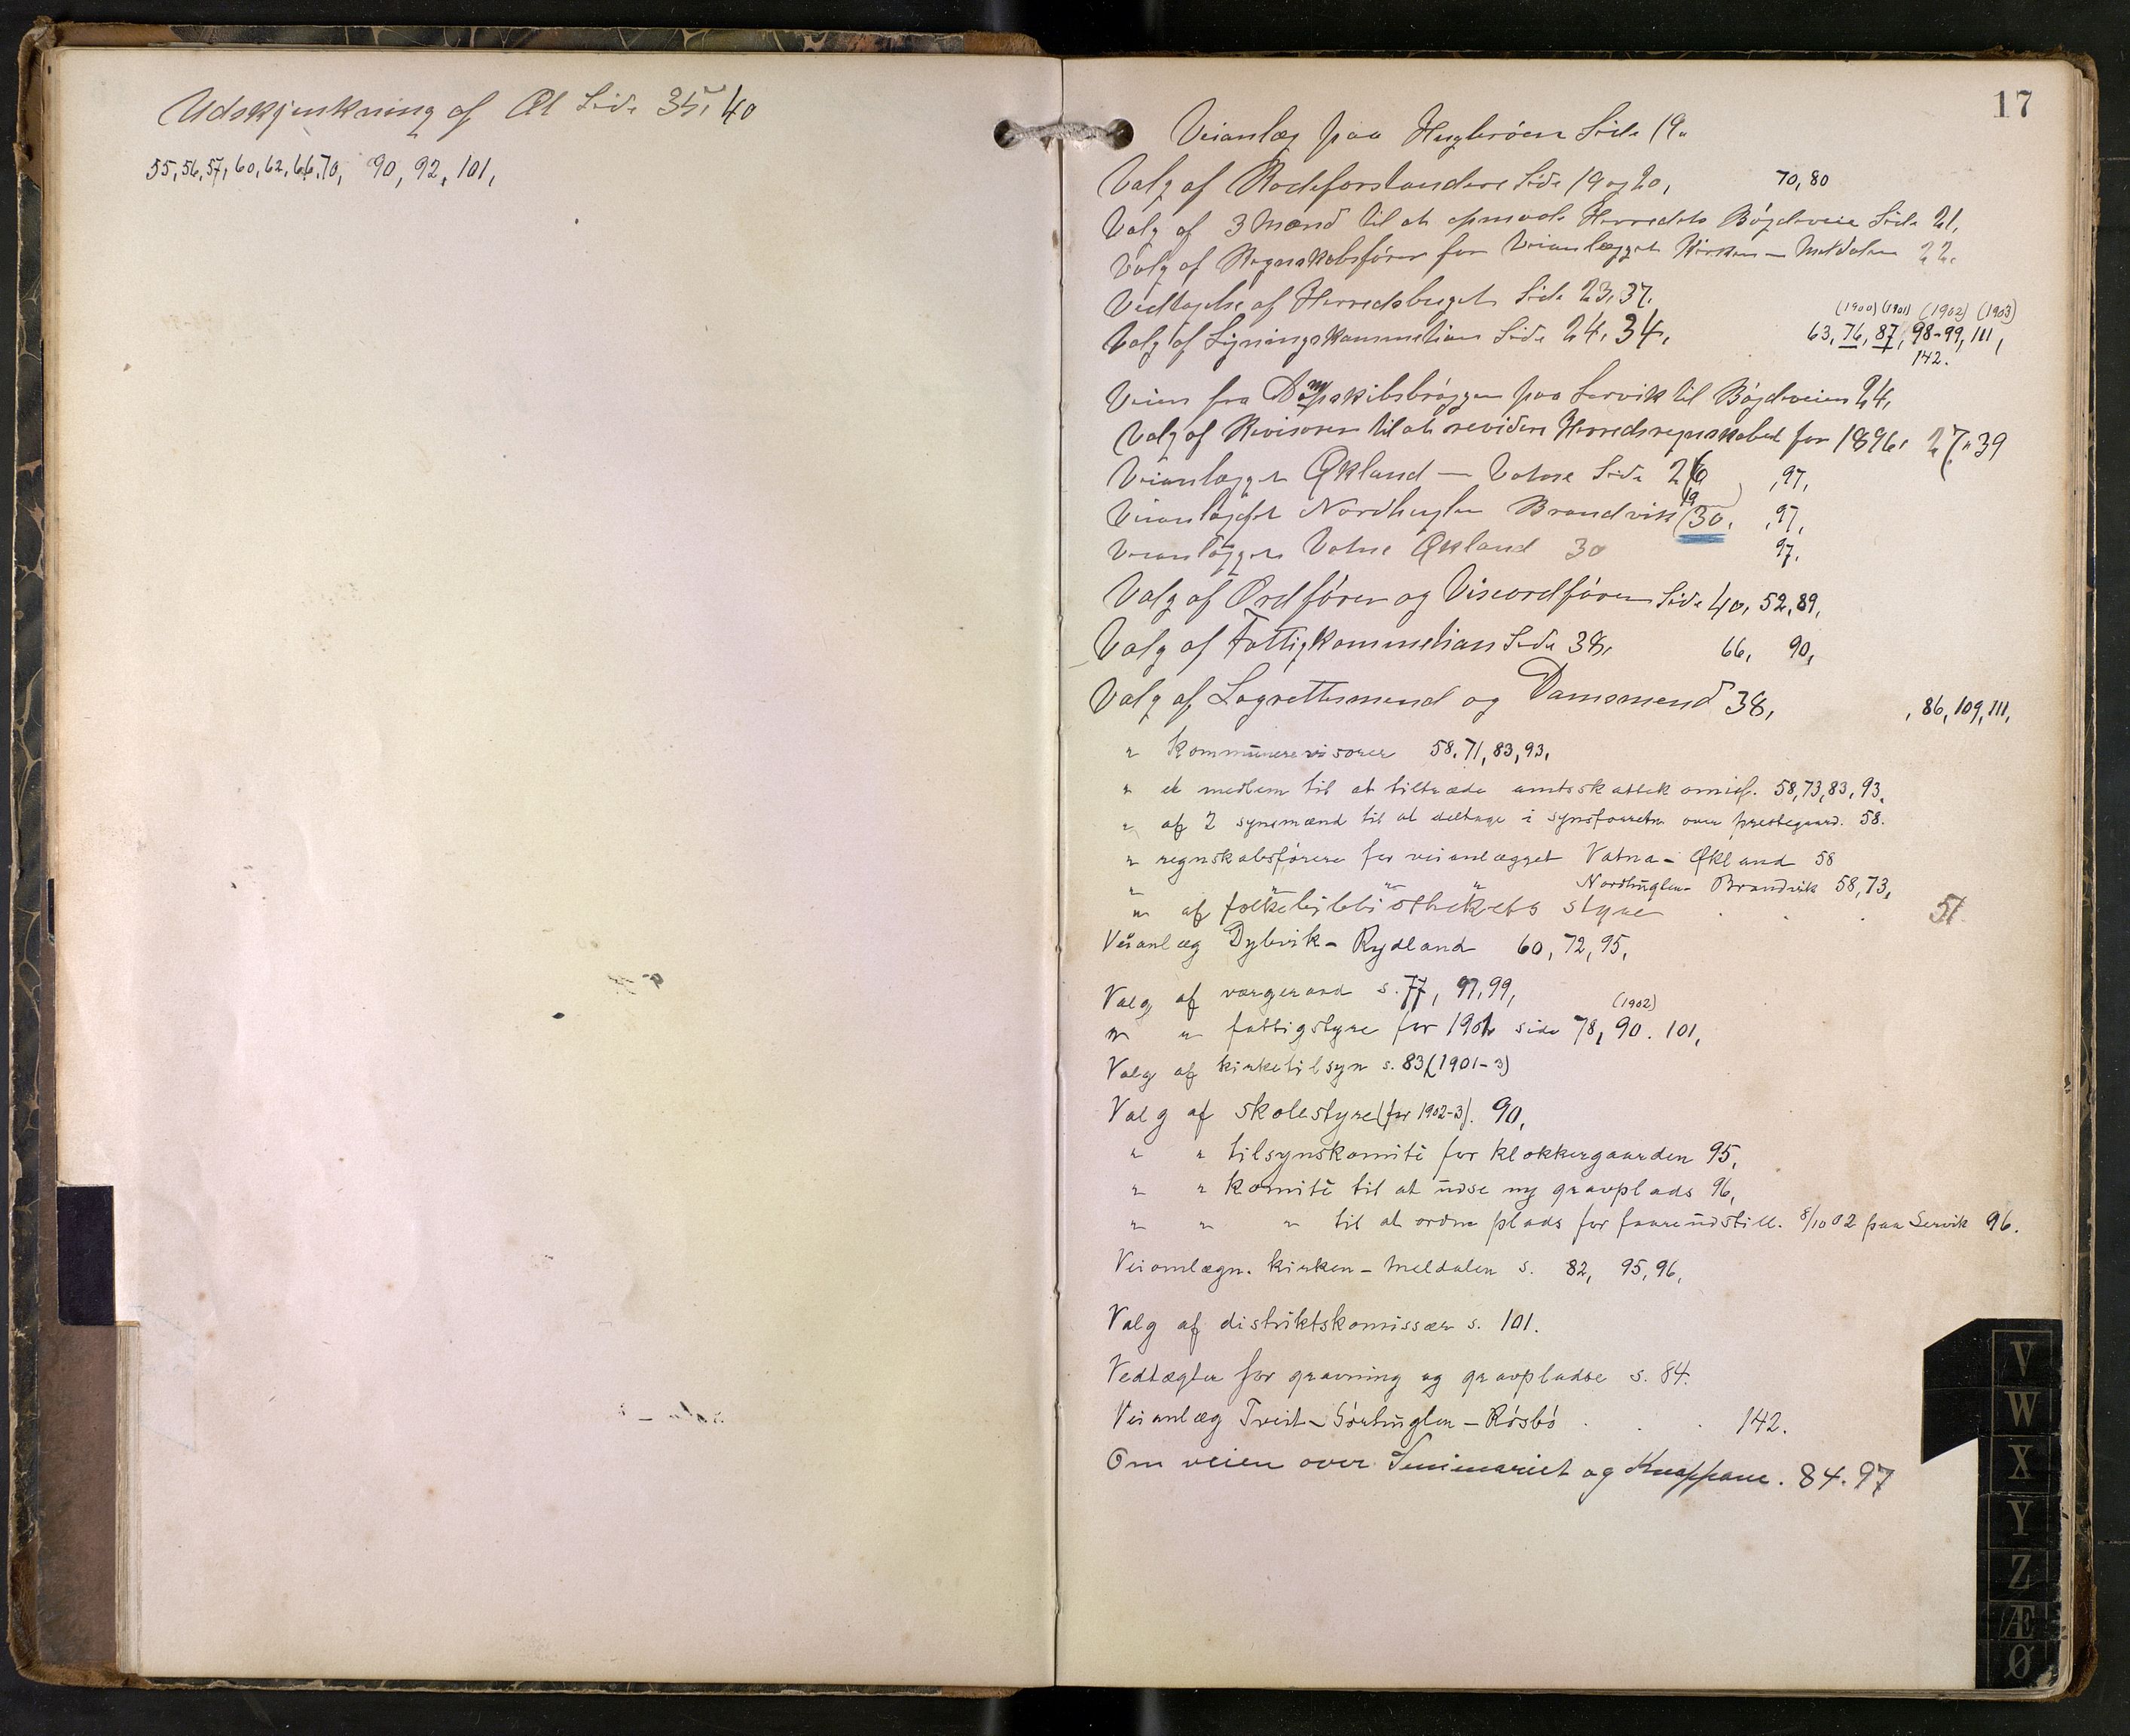 Udskjenkning af Øl Side 35, 40
55, 56, 57, 60, 62, 66, 70, 90, 92, 101,
17
Veianlæg paa Huglerøen Side 19.
Valg af Rodeforstandere Side 19 og 20, 70, 80
Valg af 3 Mænd til at opmaale Herredets Bøgdeveie Side 21,
Valg af Regnskabsfører for Veianlægget Kirken - Meldalen 22.
Vedtagelse af Herredsbuget Side 23, 37,
(1900) (1901) (1902) (1903)
Valg af Ligningskommetion Side 24, 34, 63, 76, 87, 98-99, 111,
142.
Veien fra Dampskibsbryggen paa Lervik til Bøgdeveien 24,
Valg af Revisorer til at revidere Herredsregnskabet for 1896, 27, 39
Veianlægget Økland - Vatne Side 26 ,97,
19
Veianlægget Nordhuglen Brandvik 30, ,97,
Veianlægget Vatne Økland 30 97,
Valg af Ordfører og Viseordfører Side 40, 52, 89,
Valg af Fattigkommetion Side 38, 66, 90,
Valg af Lagrettesmend og Damsmend 38, , 86, 109, 111,
" Kommunerevisorer 58, 71, 83, 93,
" et medlem til at tiltræde amtsskattekomiss. 58, 73, 83, 93,
" af 2 synsmænd til at deltage i synsforretn. over prestegaard. 58.
" regnskabsførere for veianlægget Vatna - Økland 58
" " " " Nordhuglen - Brandvik 58, 73,
" af folkebibliothekets styre . . 51.
Veianlæg Dybvik - Rydland 60, 72, 95,
Valg af vergeraad s. 77, 97, 99,
(1902)
" " fattigstyre for 1901 side 78, 90. 101,
Valg af kirketilsyn s. 83, (1901-3)
Valg af skolestyre (for 1902-3). 90,
" " tilsynskomité for klokkergaarden 95,
" " komité til at udse ny gravplads 96,
" " " til at ordne plads for faareudstill. 8/10 02 paa Lervik 96.
Veiomlægn. kirken - Meldalen s. 82, 95, 96,
Valg af distriktskomissær s. 101.
Vedtægter for gravning og gravpladse s. 84.
Veianlæg Tveit - Sørhuglen - Røsbø . . . 142.
Om veien over Seminariet og Knappane. 84. 97
V
W
X
Y
Z
Æ
Ø